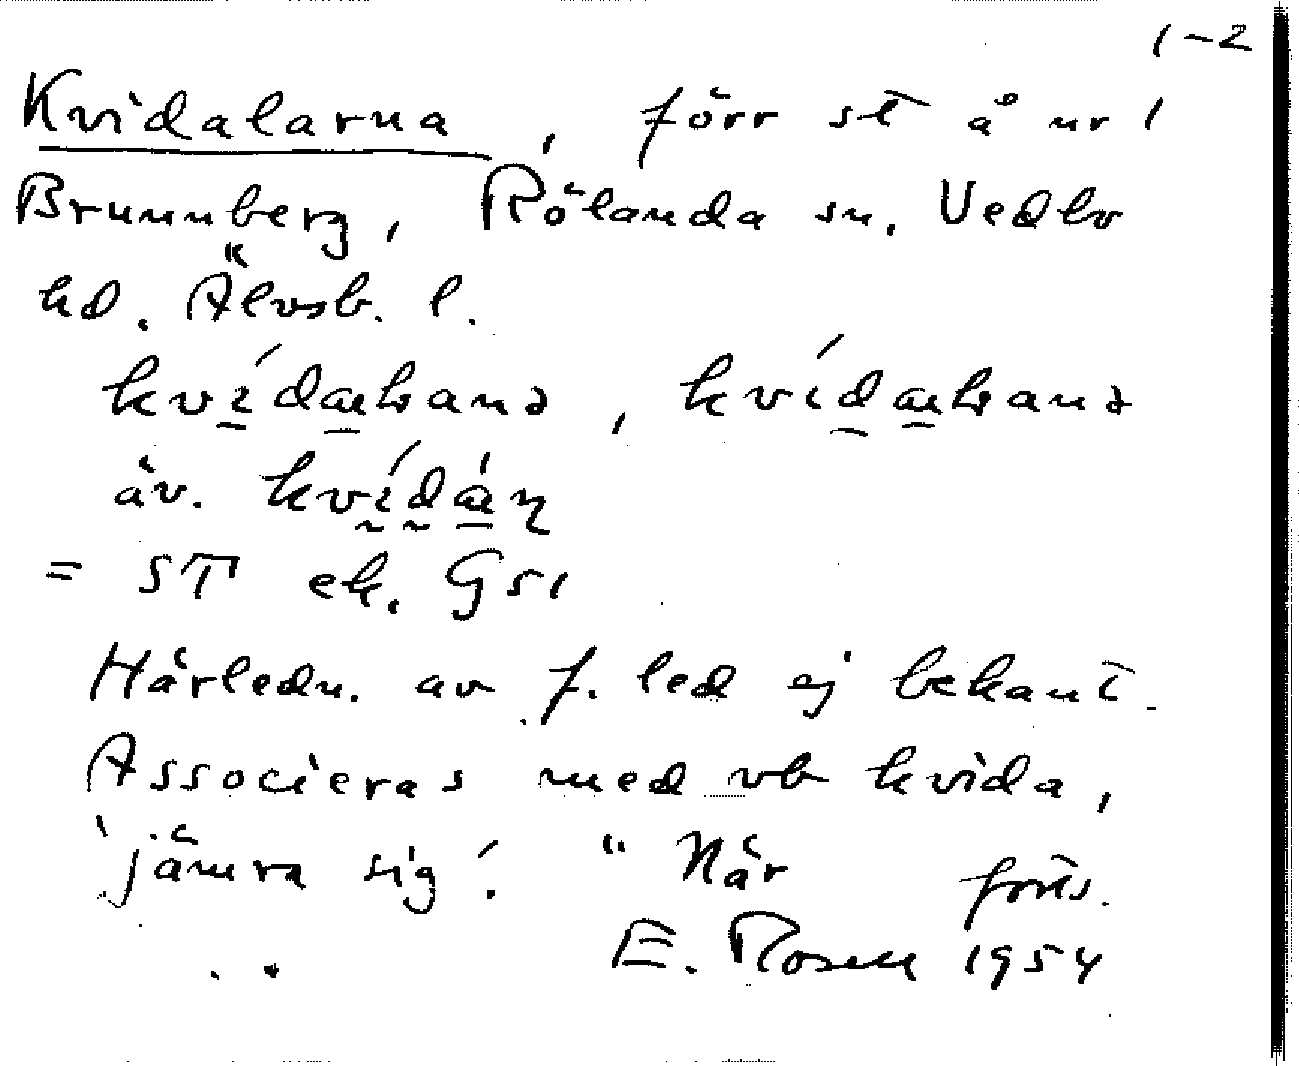 1-2
Kvidalarna, förr st å nr 1
Brunnberg, Rölanda sn. Vedbo
hd. Älvsb. l.
äv.
= ST ek. G51
Härledn. av f. led ej bekant.
Associeras med vb kvida,
'jämra sig'. " När forts.
E. Rosell 1954